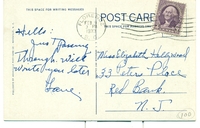 THIS SPACE FOR WRITING MESSAGES
POST CARD
Hello:
Just Passing
Through. Will
write you later
Jane
Miss Elizabeth
33 Peter Place
Red Bank.
N. J.